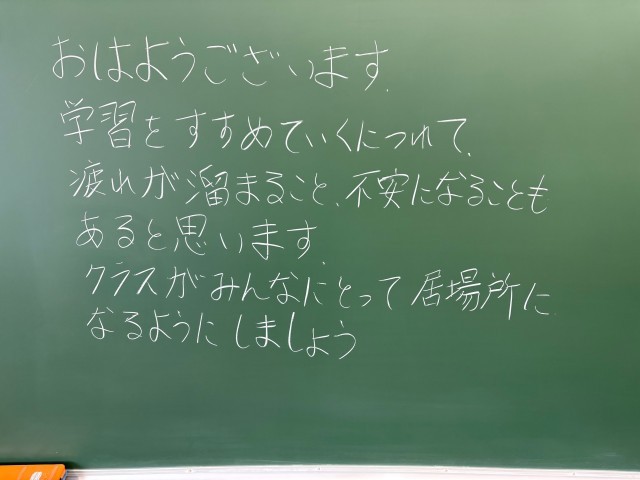 おはようございます.
学習をすすめていくにつれて、
疲れが溜まること、不安になることも
あると思います.
クラスがみんなにとって居場所に
なるようにしましょう